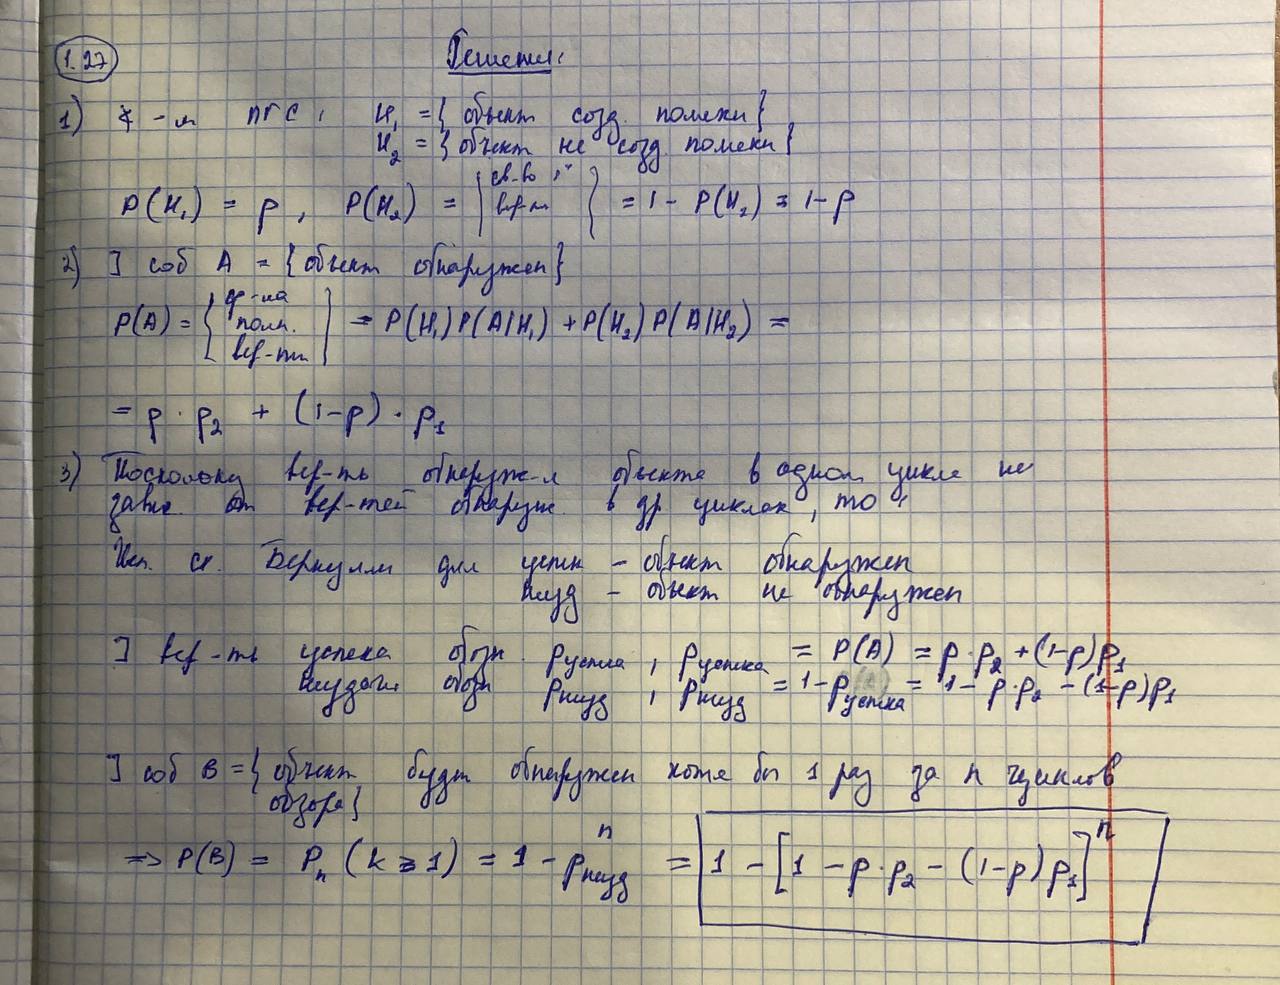 1.27
Решение:
1) ф-м ПГС: H₁ = { объект созд. помехи }
H₂ = { объект не созд помехи }
P(H₁) = p, P(H₂) = { св-во вер-т } = 1 - P(H₂) = 1-p
2) ] соб A = { объект обнаружен }
P(A) = { ф-ла полн. вер-ти } = P(H₁)P(A|H₁) + P(H₂)P(A|H₂) =
= p · p₂ + (1-p) · p₁
3) Поскольку вер-ть обнаруж-я объекта в одном цикле не
завис. от вер-тей обнаруж. в др циклах, то
Исп. сх. Бернулли для успех - объект обнаружен
неуд - объект не обнаружен
] вер-ть успеха обозн. p успеха, p успеха = P(A) = p·p₂ + (1-p)p₁
неудачи обозн p неуд, p неуд = 1 - p успеха = 1 - p·p₂ - (1-p)p₁
] соб B = { объект будет обнаружен хотя бы 1 раз за n циклов
обзора}
=> P(B) = Pₙ (k ⩾ 1) = 1 - p неудⁿ = 1 - [1 - p·p₂ - (1-p)p₁]ⁿ